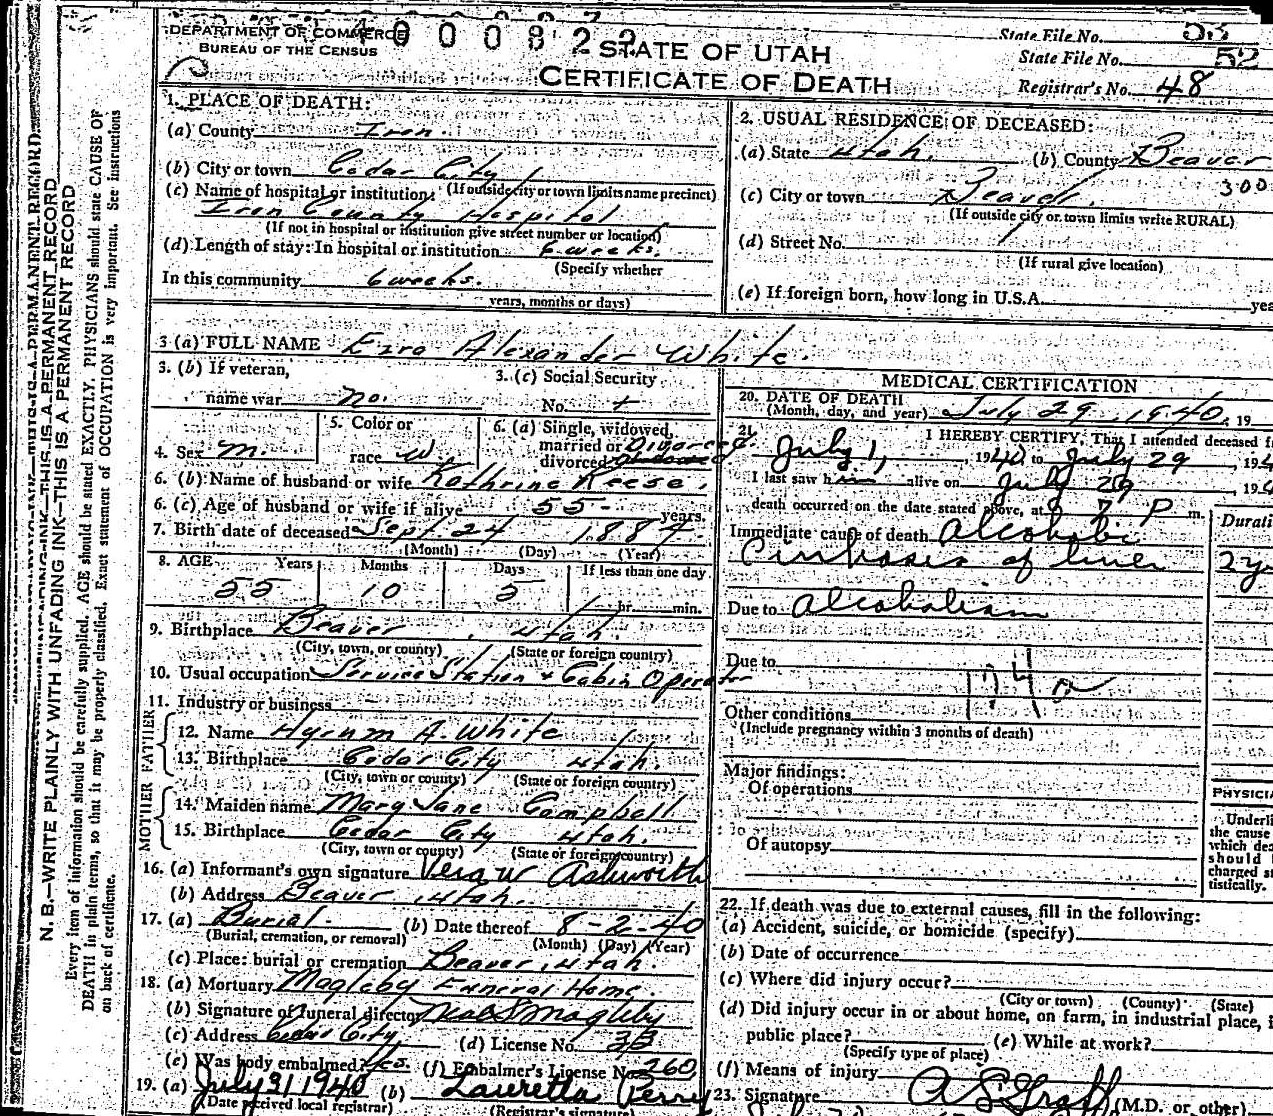 DEPARTMENT OF COMMERCE
BUREAU OF THE CENSUS
STATE OF UTAH
CERTIFICATE OF DEATH
State File No. 53
State File No. 52
Registrar's No. 48
1. PLACE OF DEATH:
(a) County Iron.
(b) City or town Cedar City
(If outside city or town limits name precinct)
(c) Name of hospital or institution:
Iron County Hospital
(If not in hospital or institution give street number or location)
(d) Length of stay: In hospital or institution 6 weeks.
(Specify whether
In this community 6 weeks.
years, months or days)
2. USUAL RESIDENCE OF DECEASED:
(a) State Utah. (b) County Beaver
300
(c) City or town Beaver.
(If outside city or town limits write RURAL)
(d) Street No.
(If rural give location)
(e) If foreign born, how long in U.S.A. yea
3 (a) FULL NAME Ezra Alexander White.
3. (b) If veteran,
name war no.
3. (c) Social Security
No.
4. Sex m.
5. Color or
race w.
6. (a) Single, widowed,
married or
divorced Divorced.
6. (b) Name of husband or wife Kathrine Reese.
6. (c) Age of husband or wife if alive 55 years.
7. Birth date of deceased Sept. 24 188
(Month) (Day) (Year)
8. AGE Years Months Days If less than one day
55 10 5 hr. min.
9. Birthplace Beaver, Utah.
(City, town, or county) (State or foreign country)
10. Usual occupation Service Station + Cabin Operator
11. Industry or business
FATHER
12. Name Hyrum A. White
13. Birthplace Cedar City Utah.
(City, town or county) (State or foreign country)
MOTHER
14. Maiden name Mary Jane Campbell
15. Birthplace Cedar City Utah.
(City, town or county) (State or foreign country)
16. (a) Informant's own signature Vera W Ashworth
(b) Address Beaver, Utah.
17. (a) Burial. (b) Date thereof 8-2-40
(Burial, cremation, or removal) (Month) (Day) (Year)
(c) Place: burial or cremation Beaver, Utah.
18. (a) Mortuary Magleby Funeral Home.
(b) Signature of funeral director Neal S Magleby
(c) Address Cedar City (d) License No. 33
(e) Was body embalmed? Yes. (f) Embalmer's License No. 260
19. (a) July 31 1940 (b) Lauretta Perry
(Date received local registrar) (Registrar's signature)
MEDICAL CERTIFICATION
20. DATE OF DEATH
(Month, day, and year) July 29, 1940, 19
21. I HEREBY CERTIFY, That I attended deceased f
July 1, 1940 to July 29, 194
I last saw him alive on July 29, 194
death occurred on the date stated above, at 7 P m.
Durati
Immediate cause of death Alcoholic
Cirrhosis of liver 2 y
Due to Alcoholism
Due to
Other conditions
(Include pregnancy within 3 months of death)
Major findings:
Of operations
Of autopsy
PHYSICIA
Underli
the cause
which dea
should
charged st
tistically.
22. If death was due to external causes, fill in the following:
(a) Accident, suicide, or homicide (specify)
(b) Date of occurrence
(c) Where did injury occur?
(City or town) (County) (State)
(d) Did injury occur in or about home, on farm, in industrial place, i
public place? (e) While at work?
(Specify type of place)
(f) Means of injury
23. Signature A S Graff (M.D. or other)
N. B.—WRITE PLAINLY WITH UNFADING INK—THIS IS A PERMANENT RECORD
Every item of information should be carefully supplied. AGE should be stated EXACTLY. PHYSICIANS should state CAUSE OF
DEATH in plain terms, so that it may be properly classified. Exact statement of OCCUPATION is very important. See instructions
on back of certificate.